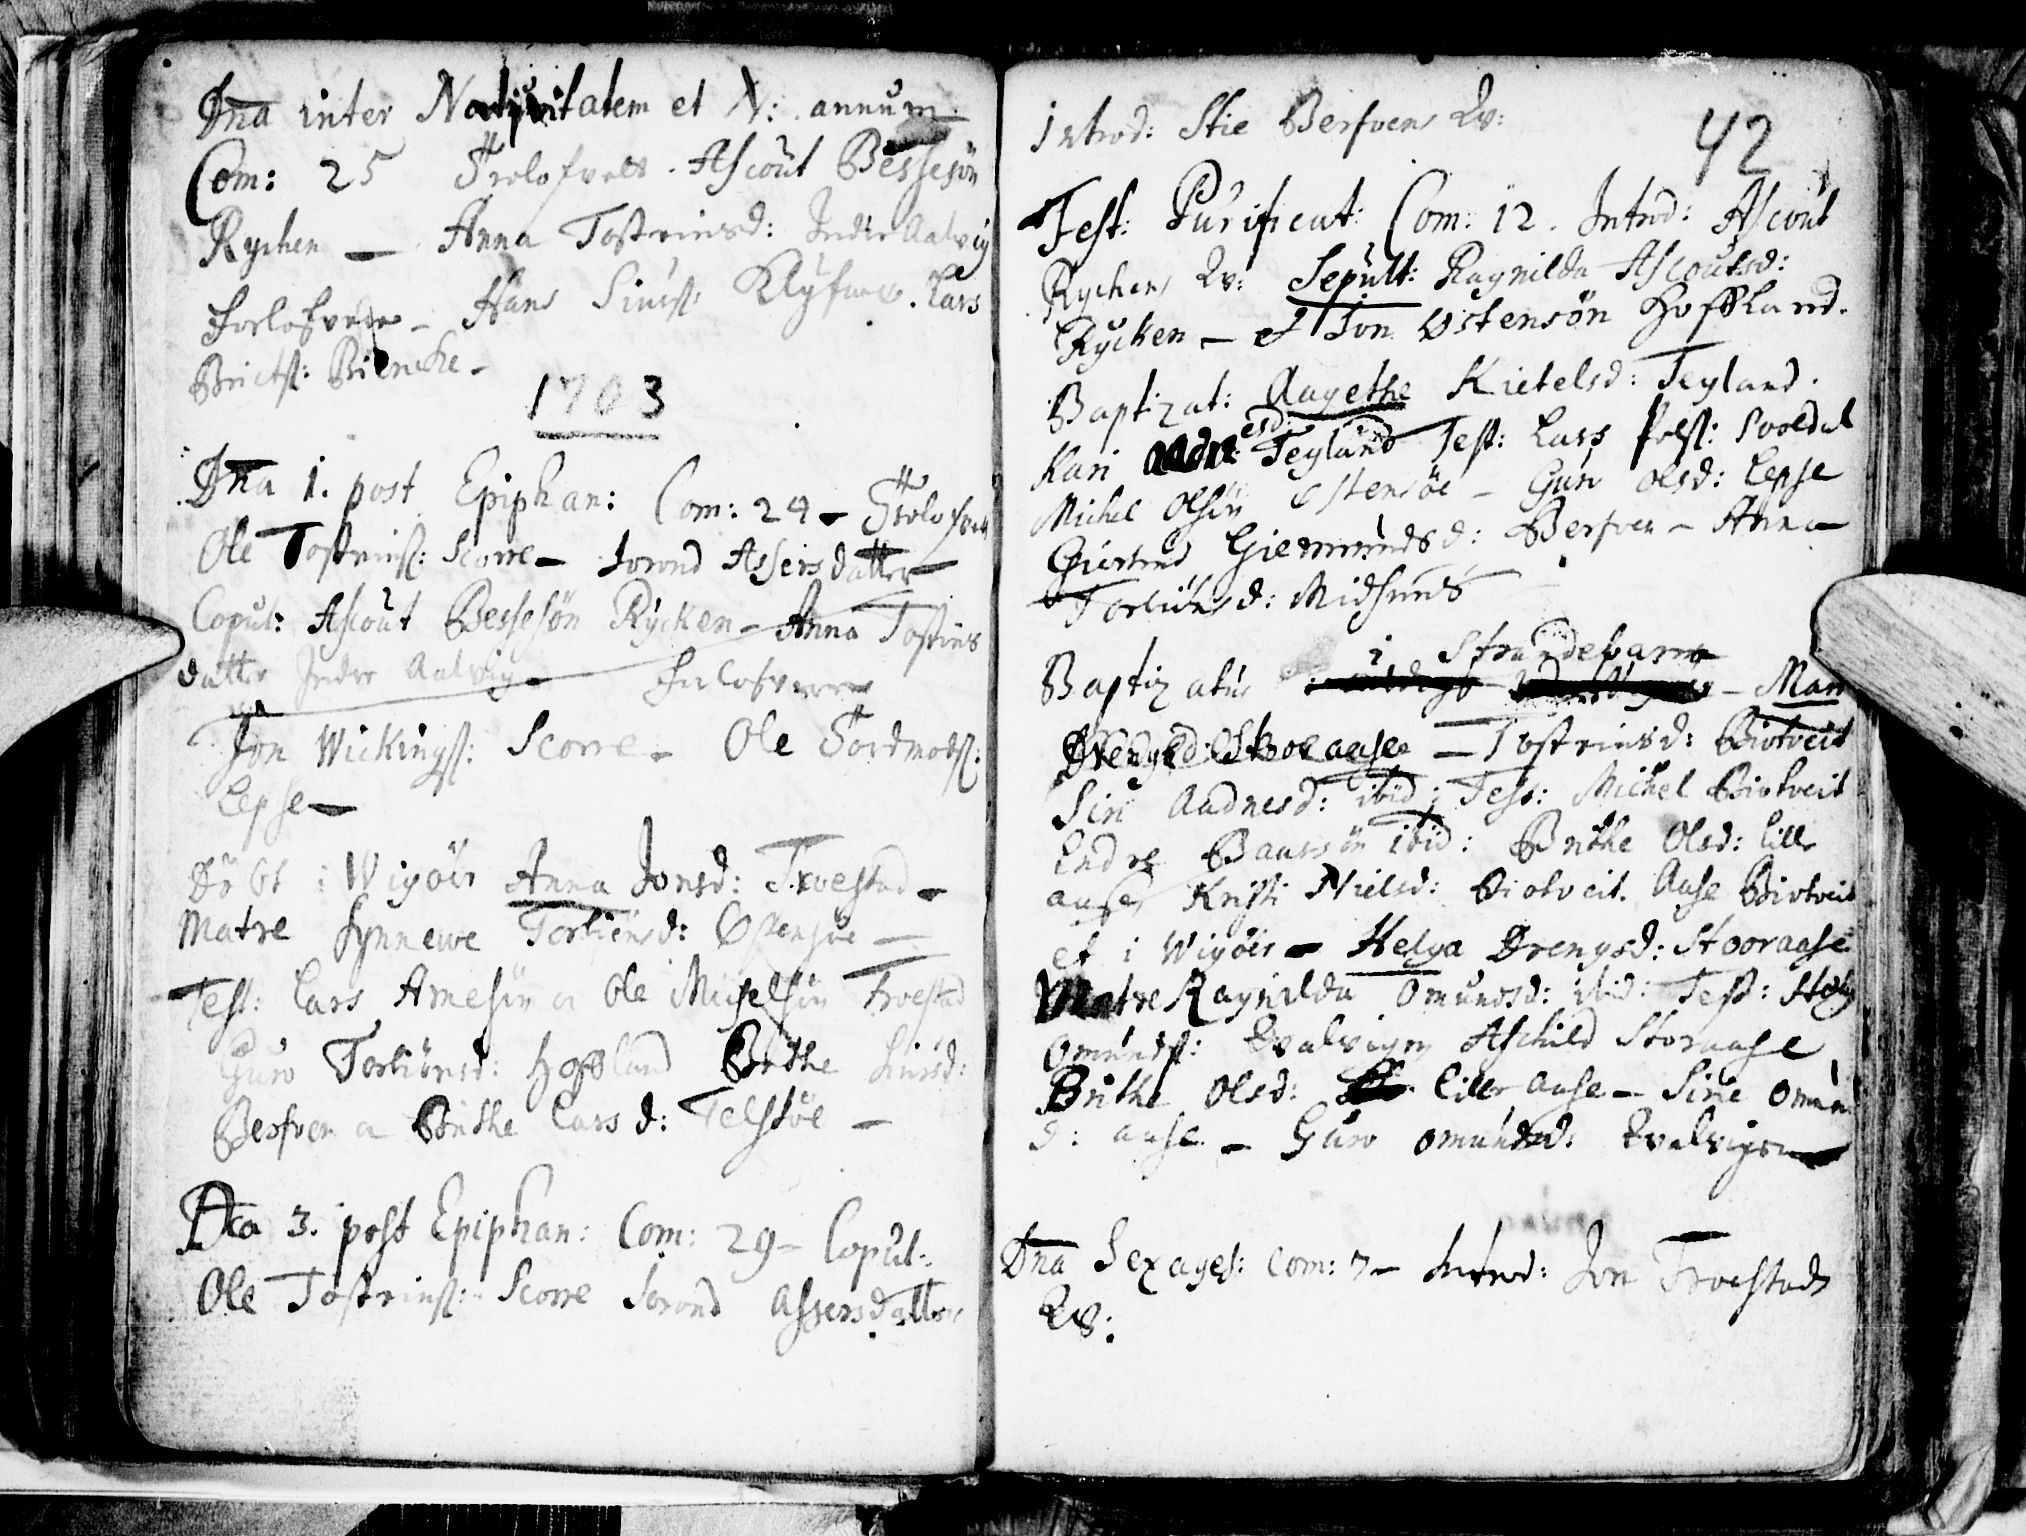 Dna inter Nativitatem et N: annum
Com: 25 Trolofvelse. Ascout Bessesön
Rychen — Anna Tostensd: Indre Aalvig
Forlofvere — Hans Siurs: Lars
Brictss:
1703
Dna 1. post Epiphan: Com: 24 — Trolofvet
Ole Tostenss: Scorre — Jorond Assersdatter —
Copul: Ascout Bessesön Rycken — Anna Tostens
datter Indre Aalvig — Forlofvere
Jon Wickingss: Scorre — Ole Tordmods:
Lepse —
Döbt i Wigöer Anna Jonsd: Troestad —
Matre Synnewe Torbiönsd: Ostensöe —
Test: Lars Arnesön a Ole Michelsön Troestad
Guro Torbiönsd: Hoffland Brithe Siursd:
Berfven a Brithe Larsd: Telstöe —
Dca 3. post Epiphan: Com: 29 — Copul:
Ole Tostenss: Scorre Jorond Assersdatter
42
Introd: Stie Berfvens Qv:
Fest: Purificat: Com: 12. Introd: Ascout
Rychens Qv: Sepult: Ragnilda Ascoutsd:
Rycken — et Jon Ostensön Hoffland.
Baptizat: Aagethe Kietelsd: Teyland.
Kari Teyland Test: Lars
Michel Olsön Ostensöe — Guro Olsd: Lepse
Giertrud Giermundsd: Berfven — Anna
Torbiönsd: Midsund
Baptizatus i Strandebarm — Mari
Storaase — Tostensd: Biotveit
Siri Aadnesd: ibid: Test: Michel Biotveit
Endre Baarsön ibid: Brithe Olsd: Lille
aase, Kristi Nielsd: Biotveit. Aase Biotveit
et i Wigöer — Helga Drengsd: Stooraase
Matre Ragnilda Omundsd: ibid: Test:
Omundss: Qvalvigen Aschild Storaase
Brithe Olsd: Liller aase — Sirie Omun
d: aase — Guro Omundsd: Qvalvigen —
Dna Sexages: Com: 7 — Introd: Jon Troestads
Qv: